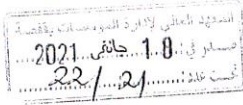 المعهد العالي لإدارة المؤسسات بقفصة
صادر في: 18 جانفي 2021
تحت عدد: 21 / 22